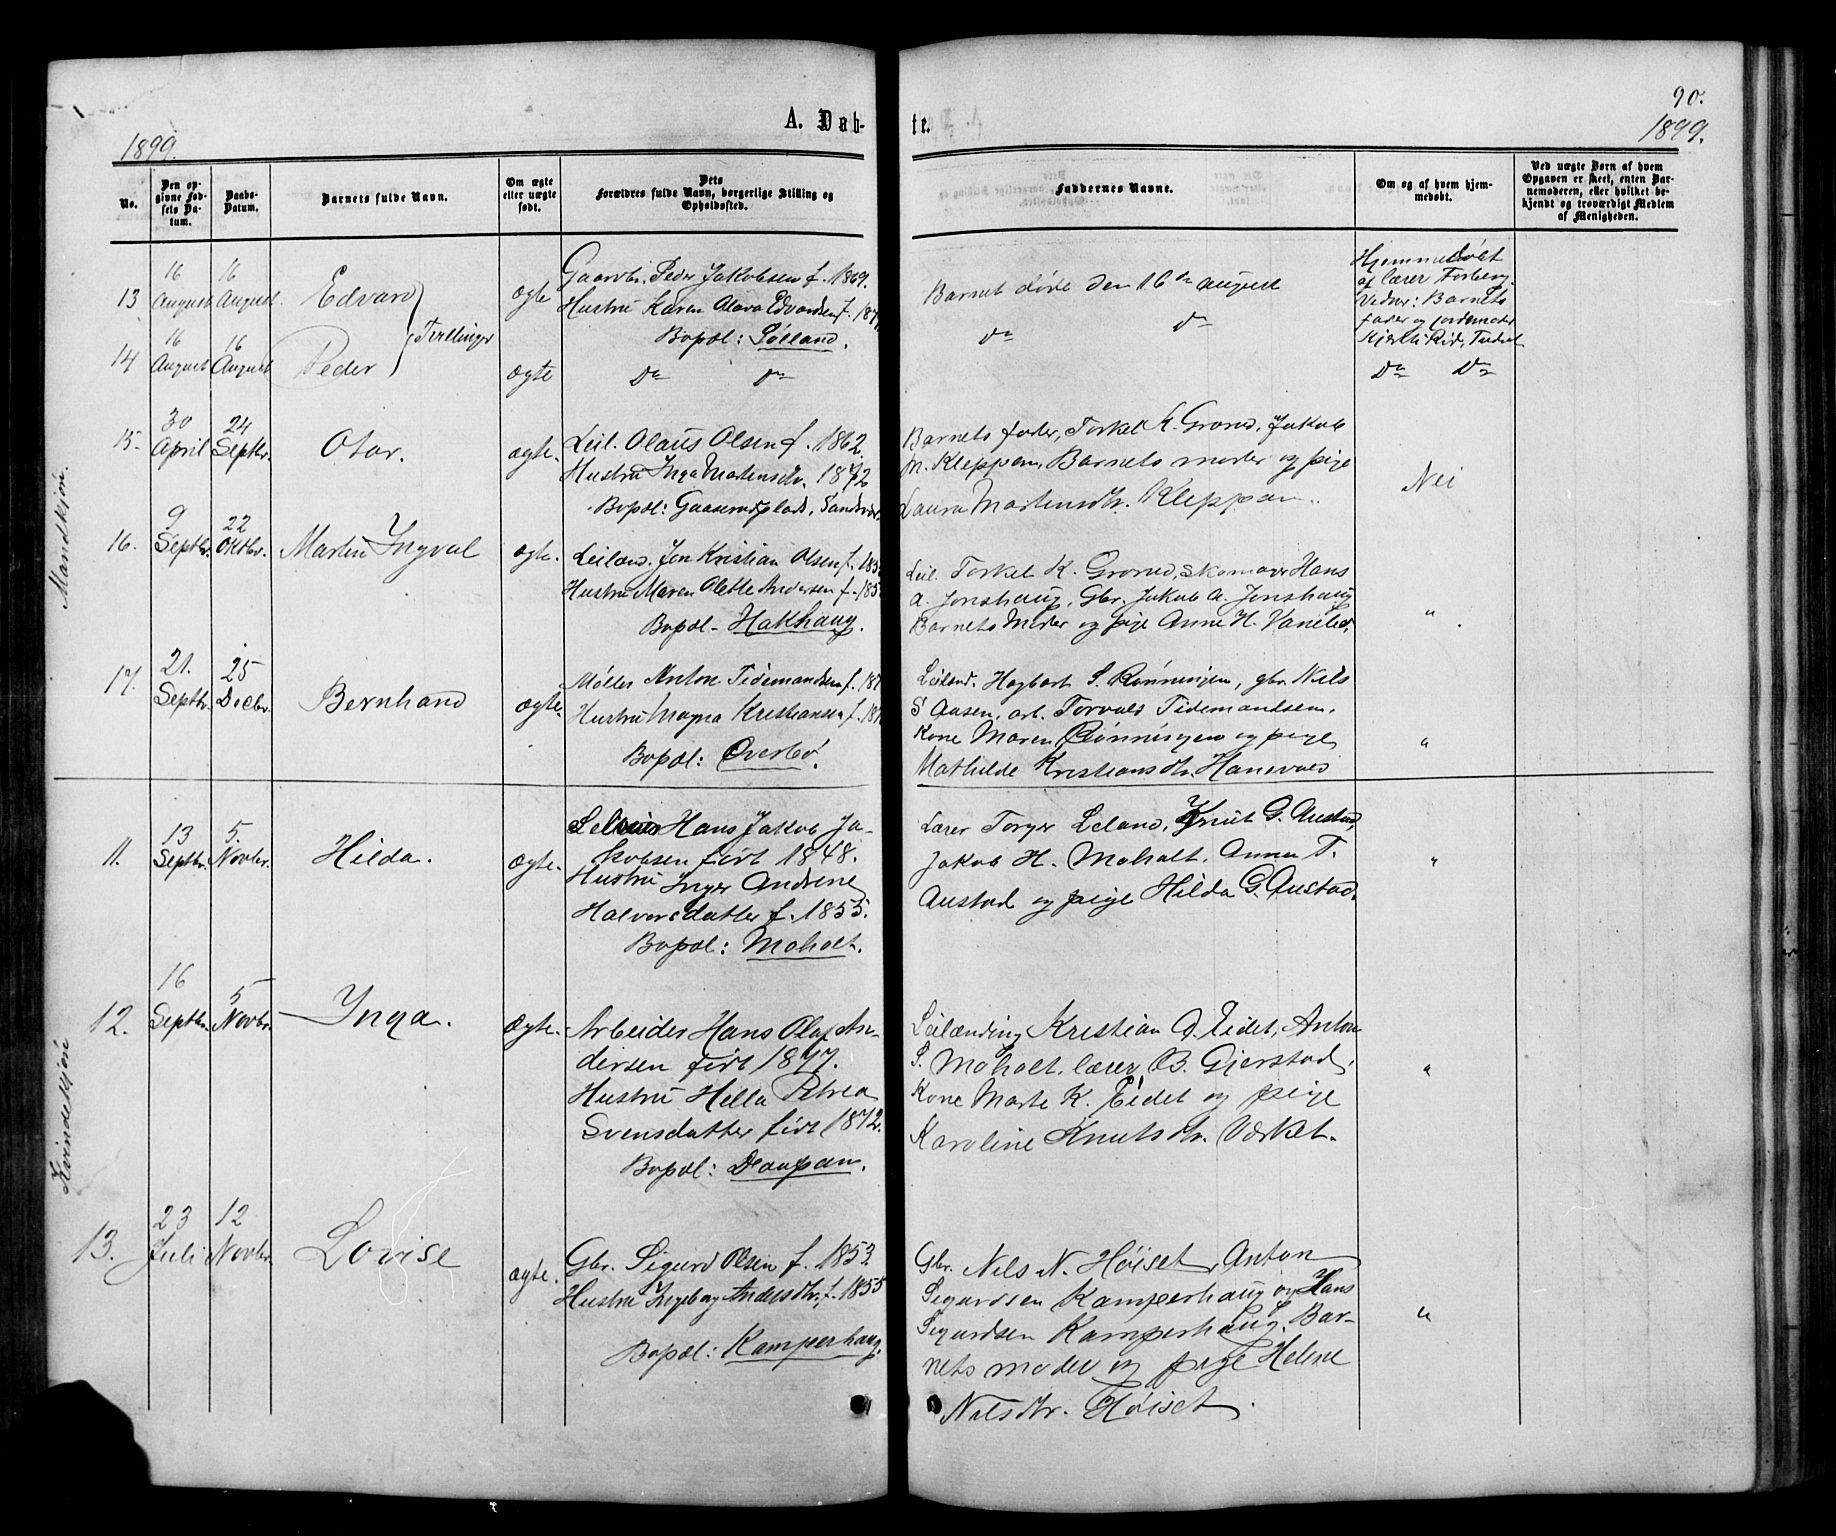 90.
1899.
1899.
A. Døb-
te.
No.
Den op-
givne Fød-
sels Da-
tum.
Daabs-
Datum.
Barnets fulde Navn.
Om ægte
eller uægte
født.
Dets
Forældres fulde Navn, borgerlige Stilling og
Opholdssted.
Faddernes Navne.
Om og af hvem hjem-
medøbt.
Ved uægte Børn af hvem
Opgaven er skeet, enten Bar-
nemoderen, eller hvilket be-
kjendt og troværdigt Medlem
af Menigheden.
Mandkjøn.
13
16
August
16
August.
Edvard
Tvillinger
ægte
Gaardbr. Peder Jakobsen f. 1869.
Hustru Karen Olava Edvardsen f. 187
Bopæl: Sølland.
Barnet døde den 16de august
Hjemmedøbt
af lærer Forberg
Vidner: Barnets
fader og jordemoder
14
16
August
16
August
Peder
ægte
Do Do
Do Do
Do Do
15.
30
April
24
Septbr.
Otar.
ægte.
Leil. Olaus Olsen f. 1862.
Hustru Inga Martensdtr. 1872
Bopæl: Gaaserudplads, Sandvær
Barnets fader, Torkel K. Grønd, Jakob
M. Kleppan, Barnets moder og pige
Laura Martensdtr. Kleppan.
Nei
16.
9
Septbr.
22
Oktbr.
Martin Ingval
ægte.
Leilænd. Jon Kristian Olsen f. 185
Hustru Maren Olette Andersen f. 185
Bopæl- Hakhaug.
Leil. Torkel K. Grønd, skomager Hans
A. Jonshaug, Gbr. Jakob A. Jonshaug
Barnets Moder og pige Anne H. Vanebo,
"
17.
21.
Septbr.
25
Decbr.
Bernhard
ægte.
Møller Anton Tidemandsen f. 187
Hustru Magna Kristiansen f. 187
Bopæl: Overbø.
Leilænd. Hagbart S. Rønningen, gbr. Nils
S Aasen, arb. Torvals Tidemandsen,
Kone Maren Rønningen og pige
Mathilde Kristiansdtr. Hanevold
"
Kvindeskjøn
11.
13
Septbr.
5.
Novbr.
Hilda.
ægte.
Hans Jakob Ja-
kobsen født 1848.
Hustru Inger Andrine
Halvorsdatter f. 1855.
Bopæl: Moholt.
Lærer Torger Leland, Knut G. Austad,
Jakob H. Moholt, Anna T.
Austad og pige Hilda G. Austad.
"
12.
16
Septbr.
5
Novbr.
Inga.
Ægte.
Arbeider Hans Olaf An-
dersen født 1877.
Hustru Hella Petrea
Svensdatter født 1872.
Bopæl: Daapan.
Leilænding Kristian O. Eidet, Anton
S. Moholt, lærer B. Gjerstad,
Kone Marte K. Eidet og pige
Karoline Knutsdtr. Værket.
"
13.
23
Juli
12
Novbr.
Lovise
ægte.
Gbr. Sigurd Olsen f. 1853
Hustru Ingeborg Andersdtr. f. 1855
Bopæl: Kamperhaug.
Gbr. Nils N. Høiset, Anton
Sigurdsen Kamperhaug og Hans
Sigurdsen Kamperhaug, Bar-
nets moder og pige Helene
Nilsdtr. Høiset.
"